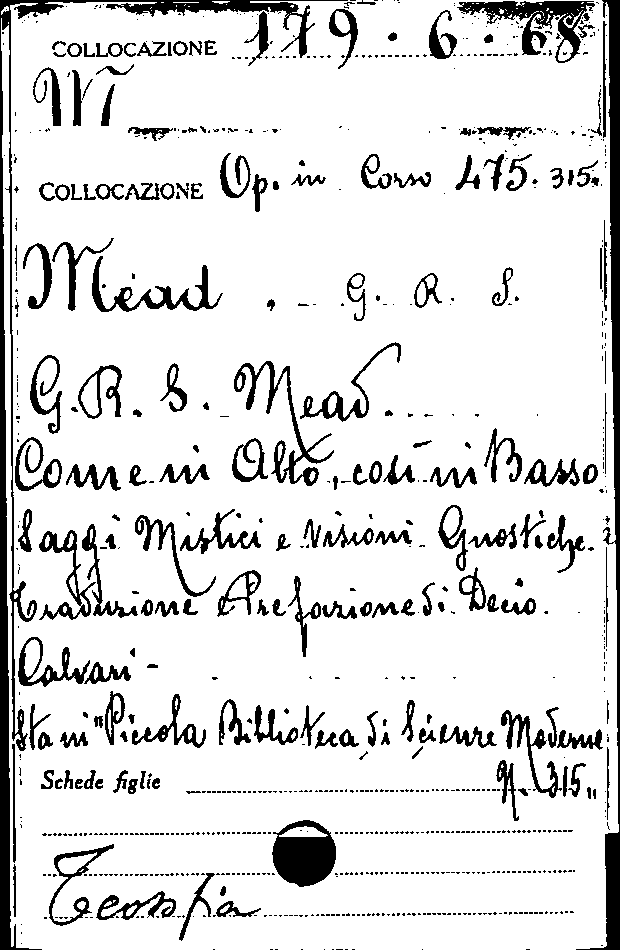 COLLOCAZIONE 179 . 6 . 68
M
COLLOCAZIONE Op. in Corso 475. 315.
Mead . G. R. S.
G. R. S. Mead.
Come in Alto, così in Basso
Saggi Mistici e Visioni Gnostiche.
Traduzione e Prefazione di Decio
Calvari -
Sta in "Piccola Biblioteca di Scienze Moderne
N. 315"
Schede figlie
Teosofia